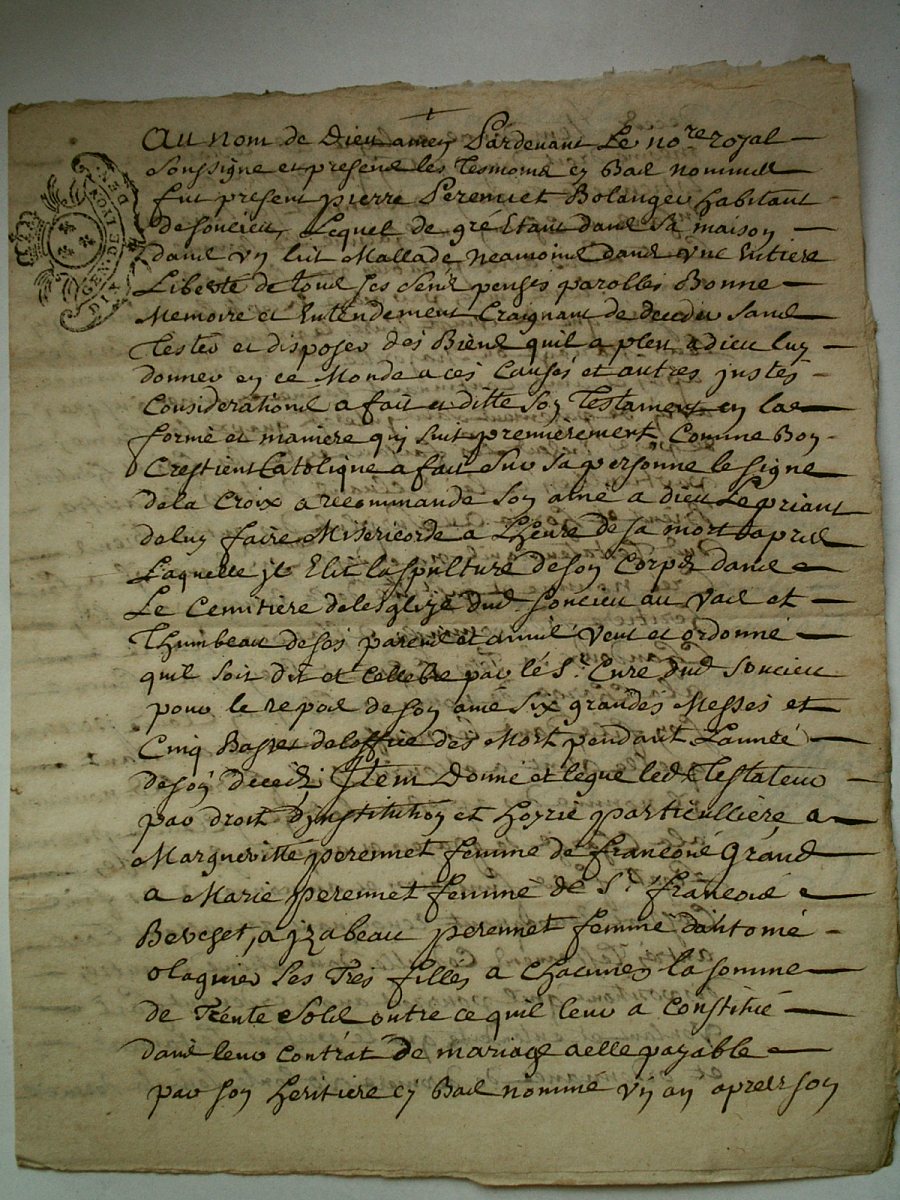 Au nom de Dieu amen Pardevant Le no.re royal
Soussigne et present les Tesmoins cy Bas nommes
fut present pierre Peremet Bolanger habitant
de soucieu, Lequel de gré Etant dans sa maison
dans un lit Mallade neamoins dans une Entiere
Liberté de tous ses sens penses parolles Bonne
Memoire et Entendement Craignant de deceder sans
Tester et disposer des Biens quil a pleu a dieu luy
donner en ce Monde a ces Causes et autres justes
Considerations a fait et ditte son Testament en la
forme et maniere quy suit premierement Comme Bon
Crestient Catolique a fait sur sa personne le signe
de la Croix a recommande son ame a dieu Le priant
de luy faire Misericorde a Lheure de sa mort apres
Laquelle jl Elit la spulture de son Corps dans
Le Cemitiere de leglize dud soucieu au vas et
Thumbeau de ses parens et amis veut et ordonne
quil soit dit et Cellebre par le Sr. Cure dud soucieu
pour le repos de son ame six grandes Messes et
Cinq Basses de loffice des Mort pendant Lannée
de son deceds, Jtem Donne et legue led Testateur
par droit d'ynstitution et hoyrie particulliere a
Margueritte perennet femme de francois Grand
a Marie perennet femme de Sr. francois
Berchet, a jzabeau perennet femme dantome
olagnier ses Tres filles a chacunes la somme
de Trente Sols outre ce quil leur a Constitué
dans leur Contrat de mariage a elle payable
par son heritiere cy Bas nomme un an apres son